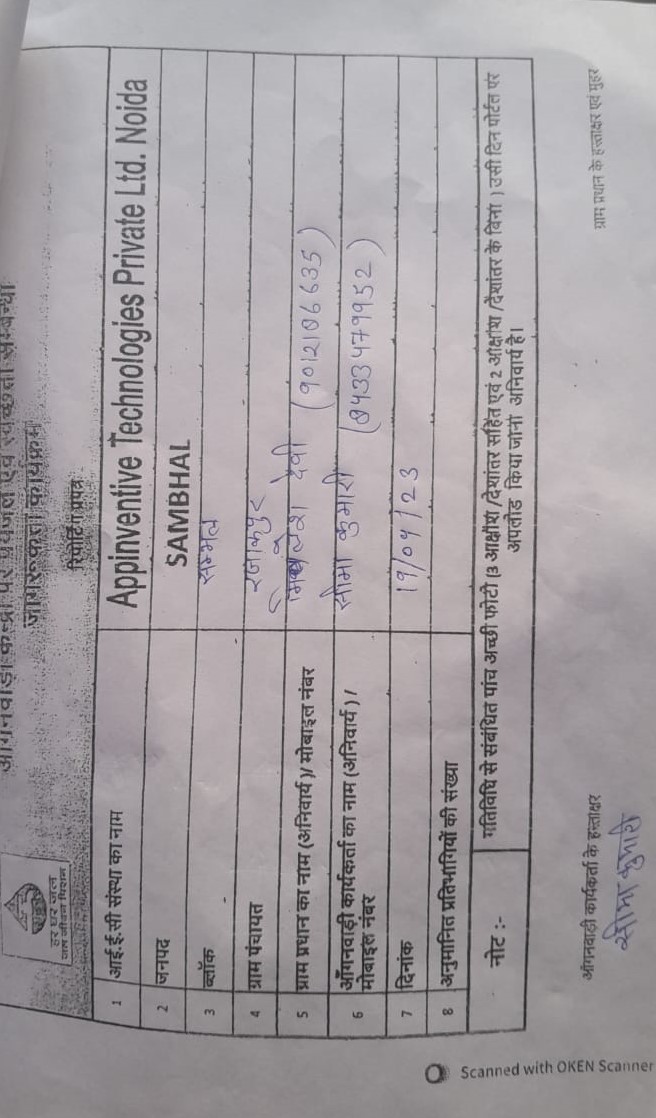 आंगनवाड़ी केन्द्रों पर पेयजल एवं स्वच्छता सम्बन्धी
जागरूकता कार्यक्रम
रिपोर्टिंग प्रपत्र
हर घर जल
जल जीवन मिशन
1 आई.ई.सी संस्था का नाम Appinventive Technologies Private Ltd. Noida
2 जनपद SAMBHAL
3 ब्लॉक सम्भल
4 ग्राम पंचायत रजाकपुर
5 ग्राम प्रधान का नाम (अनिवार्य)/ मोबाइल नंबर देवी (9012106635)
6 आँगनवाड़ी कार्यकर्ता का नाम (अनिवार्य)/ मोबाइल नंबर सीमा कुमारी (8433479952)
7 दिनांक 19/04/23
8 अनुमानित प्रतिभागियों की संख्या
नोट :- गतिविधि से संबंधित पांच अच्छी फोटो (3 आक्षांश/देशांतर सहित एवं 2 आक्षांश/देशांतर के बिना) उसी दिन पोर्टल पर
अपलोड किया जाना अनिवार्य है।
आंगनवाड़ी कार्यकर्ता के हस्ताक्षर
ग्राम प्रधान के हस्ताक्षर एवं मुहर
सीमा कुमारी
Scanned with OKEN Scanner